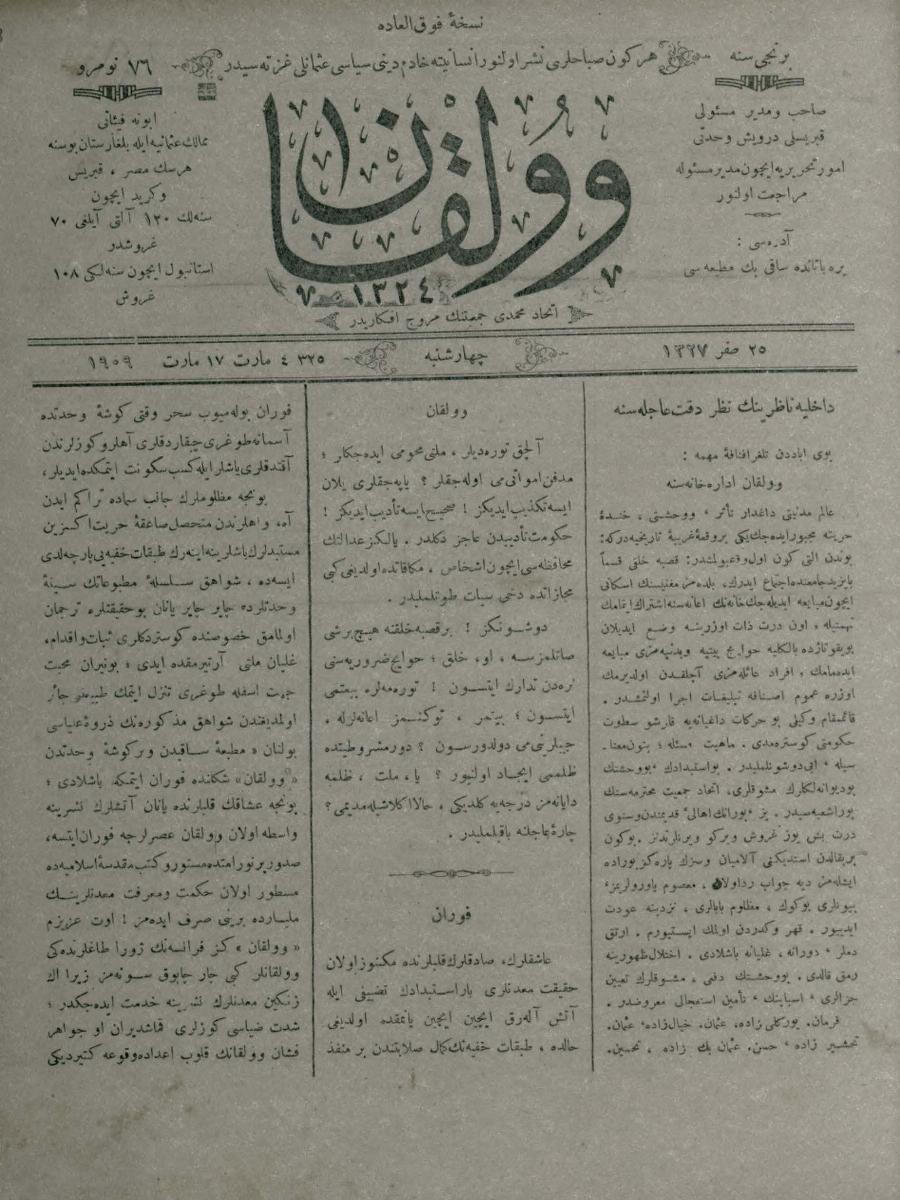 نسخهٔ فوق العاده
برنجی سنه
هر کون صباحلری نشر اولنور انسانیته خادم دینی سیاسی عثمانلی غزته سیدر
٧٦ نومرو
صاحب ومدیر مسئولی
قبریسلی درویش وحدتی
امور تحریریه ایچون مدیر مسئوله
مراجعت اولنور
آدره سی :
یره باتانده ساقی بك مطبعه سی
وولقان
١٣٢٤
اتحاد محمدی جمعیتنك مروج افکاریدر
ابونه فیئاتی
ممالك عثمانیه ایله بلغارستان بوسنه
هرسك مصر ، قبریس
وکرید ایچون
سنه لك ١٢٠ آلتی آیلغی ٧٠
غروشدر
استانبول ایچون سنه لکی ١٠٨
غروش
٢٥ صفر ١٣٢٧
چهارشنبه
٣٢٥ ٤ مارت ١٧ مارت ١٩٠٩
داخلیه ناظرینك نظر دقت عاجله سنه
بوی اباددن تلغرافنامهٔ مهمه :
وولقان اداره خانه سنه
عالم مدنیتی داغدار تأثر ، ووحشتی ، خندهٔ
حریته مجبور ایده جك یکی بروقعهٔ غریبهٔ تاریخیه درکه :
بوندن التی کون اول وقوعبولمشدر : قصبه خلقی قسماً
بایزید جامعنده اجتماع ایدرك ، بلده مز مفتیسنك اسکانی
ایچون مبایعه ایدیله جك خانه نك اعانه سنه اشتراك ایتمامك
تهمتیله ، اون درت ذات اوزرینه وضع ایدیلان
بویقوتاژده بالکلیه حوایج بیتیه وبدنیه مزی مبایعه
ایده مامك ، افراد عائله مزی آچلقدن اولدیرمك
اوزره عموم اصنافه تبلیغات اجرا اولنمشدر .
قائمقام وکیلی بو حرکات داغیانه یه قارشو سطوت
حکومتی کوستره مدی . ماهیت مسئله ؛ بتون معنا ـ
سیله ، ایی دوشونلملیدر . بواستبدادك ، بووحشتك
بودیوانه لکلرك مشوقلری ، اتحاد جمعیت محترمه سنك
بوراشعبه سیدر . بز ، بورانك اهالیٔ قدیمندن وسنوی
درت بش یوز غروش ویرکو ویرنلردنز . بوکون
بربقالدن استدیکمی آلامیان وسزك پاره کز بوراده
ایشله مز دیه جواب رد اولان ، معصوم یاورولریمز ،
بیونلری بوکوك ، مظلوم بابالری ، نزدینه عودت
ایدییور . قهر وکدردن اولمك ایستیورم . ارتق
دملر ، دورانه ، غلیانه باشلادی . اختلال ظهورینه
رمق قالدی . بووحشتك دفعی ، مشوقلرك تعیین
جزالری ، اسبابنك ، تأمین استعجالی معروضدر .
فرمان . یورکلی زاده ، عثمان . خیال زاده ، عثمان .
زاده ، حسن . عثمان بك زاده ، تحسین .
وولقان
آلچق توره دیلر ، ملتی محومی ایده جکلر ؛
مدفن امواتی می اوله جقلر ؟ یاپه جقلری یلان
ایسه تکذیب ایدیکز ! صحیح ایسه تأدیب ایدیکز !
حکومت تأدیبدن عاجز دکلدر . یالکز عدالتك
محافظه سی ایچون اشخاص ، مکافاتده اولدیغی کبی
مجازاتده دخی سیات طوتلملیدر .
دوشونکز ! برقصبه خلقنه هیچ برشی
صاتلمزسه ، او ، خلق ؛ حوایج ضروریه سنی
نره دن تدارك ایتسون ! توره مه لره بیعتمی
ایتسون ؛ بیتمز ، توکنمز اعانه لرله .
جیبلرینی می دولدورسون ؟ دور مشروطیتده
ظلممی ایجاد اولنیور ؟ یا ، ملت ، ظلمه
دایانه مز درجه یه کلدیکی ، حالا اکلاشیله مدیمی ؟
چارهٔ عاجلنه باقیلملیدر .
فوران
عاشقلرك ، صادقلرك قلبلرنده مکنوز اولان
حقیقت معدنلری بار استبدادك تضییقی ایله
آتش آله رق ایچین ایچین یانمقده اولدیغی
حالده ، طبقات خفیه نك کمال صلابتندن بر منفذ
فوران بوله میوب سحر وقتی کوشهٔ وحدتده
آسمانه طوغری چیقاردقلری آهلر و کوزلرندن
آقتدقلری یاشلر ایله کسب سکونت ایتمکده ایدیلر ،
بونجه مظلومارك جانب سماده تراکم ایدن
آه ، واهلرندن متحصل صاعقهٔ حریت اکسزین
مستبدلرك باشلرینه اینه رك طبقات خفیه یی پارچه لدی
ایسه ده ، شواهق سلسلهٔ مطبوعاتك سینهٔ
وحدتلرده چایر چایر یانان بوحقیقتلره ترجمان
اولمامق خصوصنده کوستردکلری ثبات واقدام ،
غلیان ملتی آرتیرمقده ایدی ؛ بونیران محبت
جهت اسفله طوغری تنزل ایتمك طبیعتی حائز
اولمدیغندن شواهق مذکوره نك ذروهٔ عباسی
بولنان « مطبعهٔ ساقیدن وبرکوشهٔ وحدتدن
« وولقان » شکلنده فوران ایتمکه باشلادی ؛
بونجه عشاقك قلبلرنده یانان آتشلرك نشرینه
واسطه اولان وولقان عصرلرجه فوران ایتسه ،
صدور پرنور امتده مستور وکتب مقدسهٔ اسلامیه ده
مسطور اولان حکمت ومعرفت معدنلرینك
ملیارده برینی صرف ایده مز ! اوت عزیزم
« وولقان » کز فرانسه نك ژورا طاغلرنده کی
وولقانلر کبی چار چابوق سونه مز زیرا اك
زنکین معدنلرك نشرینه خدمت ایده جکدر ؛
شدت ضیاسی کوزلری قماشدیران او جواهر
فشان وولقانك قلوب اعداده وقوعه کتیردیکی